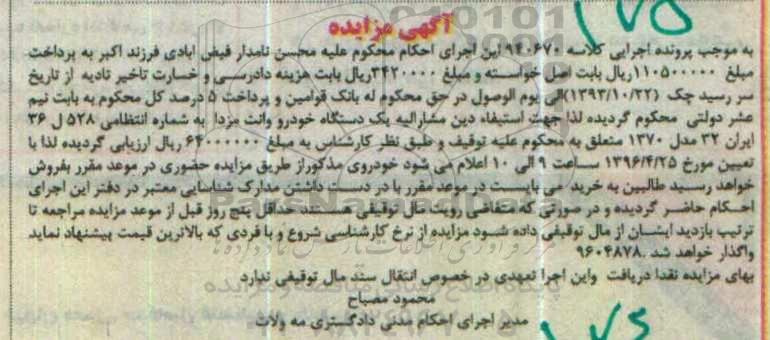 آگهی مزایده
به موجب پرونده اجرایی کلاسه ۹۴۰۶۷۰ این اجرای احکام محکوم علیه محسن نامدار فیض ابادی فرزند اکبر به پرداخت
مبلغ ۱۱۰۵۰۰۰۰۰ریال بابت اصل خواسته و مبلغ ۳۴۲۰۰۰۰ریال بابت هزینه دادرسی و خسارت تاخیر تادیه از تاریخ
سر رسید چک (۱۳۹۳/۱۰/۲۲)الی یوم الوصول در حق محکوم له بانک قوامین و پرداخت ۵ درصد کل محکوم به بابت نیم
عشر دولتی محکوم گردیده لذا جهت استیفاء دین مشارالیه یک دستگاه خودرو وانت مزدا به شماره انتظامی ۵۲۸ ل ۳۶
ایران ۳۲ مدل ۱۳۷۰ متعلق به محکوم علیه توقیف و طبق نظر کارشناس به مبلغ ۶۴۰۰۰۰۰۰ ریال ارزیابی گردیده لذا با
تعیین مورخ ۱۳۹۶/۴/۲۵ ساعت ۹ الی ۱۰ اعلام می شود خودروی مذکوراز طریق مزایده حضوری در موعد مقرر بفروش
خواهد رسید طالبین به خرید می بایست در موعد مقرر با در دست داشتن مدارک شناسایی معتبر در دفتر این اجرای
احکام حاضر گردیده و در صورتی که متقاضی رویت مال توقیفی هستند حداقل پنج روز قبل از موعد مزایده مراجعه تا
ترتیب بازدید ایشان از مال توقیفی داده شود مزایده از نرخ کارشناسی شروع و با فردی که بالاترین قیمت پیشنهاد نماید
واگذار خواهد شد .۹۶۰۴۸۷۸
بهای مزایده نقدا دریافت واین اجرا تعهدی در خصوص انتقال سند مال توقیفی ندارد
محمود مصباح
مدیر اجرای احکام مدنی دادگستری مه ولات
ParsNamadData